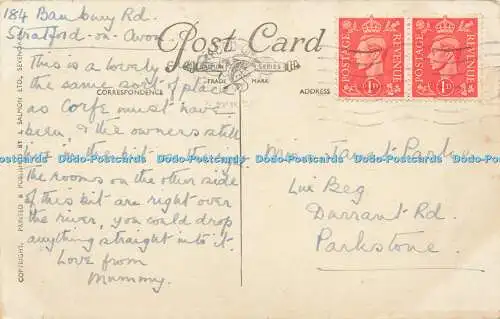 184 Banbury Rd.
Stratford-on-Avon.
Post Card
SALMON SERIES
TRADE MARK
CORRESPONDENCE
ADDRESS
This is a lovely
the same sort of place
as Corfe must have
been, & the owners still
live in the bit
the rooms on the other side
of this bit are right over
the river, you could drop
anything straight into it.
Love from
Mummy.
Miss Janet
Durrant Rd.
Parkstone.
POSTAGE REVENUE
1D
POSTAGE REVENUE
1D
COPYRIGHT. PRINTED & PUBLISHED BY J. SALMON LTD., SEVENOAKS
Dodo-Postcards Dodo-Postcards Dodo-Postcards Dodo-Postcards Dodo-Postcards